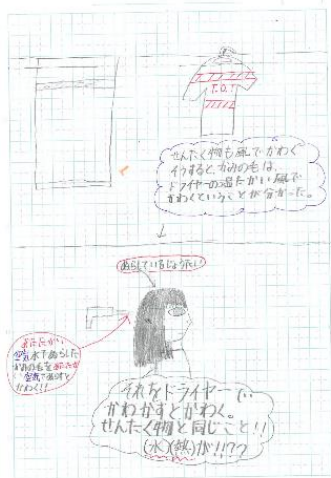 T.O.T
せんたく物も風でかわく
イコすると、かみのもは、
ドライヤーの温たかい風で
かわくということが分かった。
ぬらしているじょうたい
空気水でぬらした
かみの毛を
空気で
かわく!!
それをドライヤーでい
かわかすとかわく。
せんたく物と同じこと!!
(水)(熱)が!!??